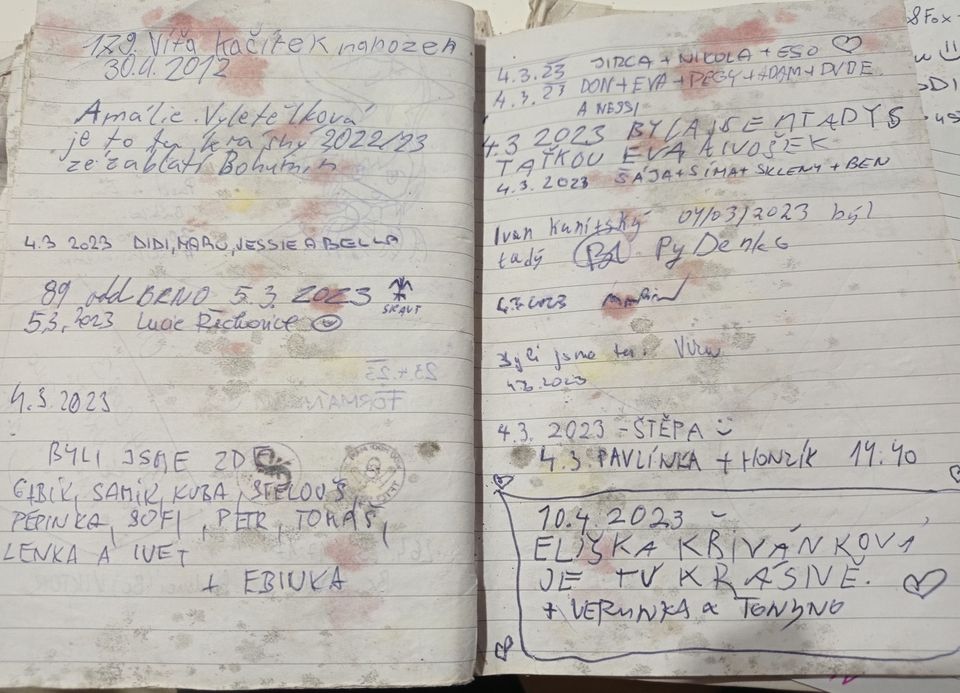 Víťa Kačírek
30.4.2012
Amálie Vyletělková
je to tu krásný 2022/23
ze záblatí Bohumín
4.3 2023 DIDI, MARU, JESSIE A BELLA
89. odd BRNO 5.3. 2023
SKAUT
5.3.2023 Lucie
23 + 23
FORMAN
4.3.2023
BYLI JSME ZDE
GABIK, SAMIK, KUBA, STELOUŠ
PEPINKA, SOFI, PETR, TOMÁŠ,
LENKA A IVET
+ EBINKA
4.3.23 JIRCA + NIKOLA + ESO ♡
4.3.23 DON + EVA + PEGY + ADAM + DVDE
A NESSI
4.3 2023 BYLA JSEM TADY S
TAŤKOU EVA A IVOŠEK
4.3.2023 ŠÁJA + SÍMA + SKLENY + BEN
Ivan Kanitský 04/03/2023 byl
tady PyDenka
4.3.2023
Byli jsme tu.
4.3.2023
4.3. 2023 - ŠTĚPA
4.3 PAVLÍNKA + HONZÍK 14.40
10.4.2023
ELIŠKA KŘIVÁNKOVÁ
JE TU KRÁSIVĚ. ♡
+ VERUNKA & TONYNO